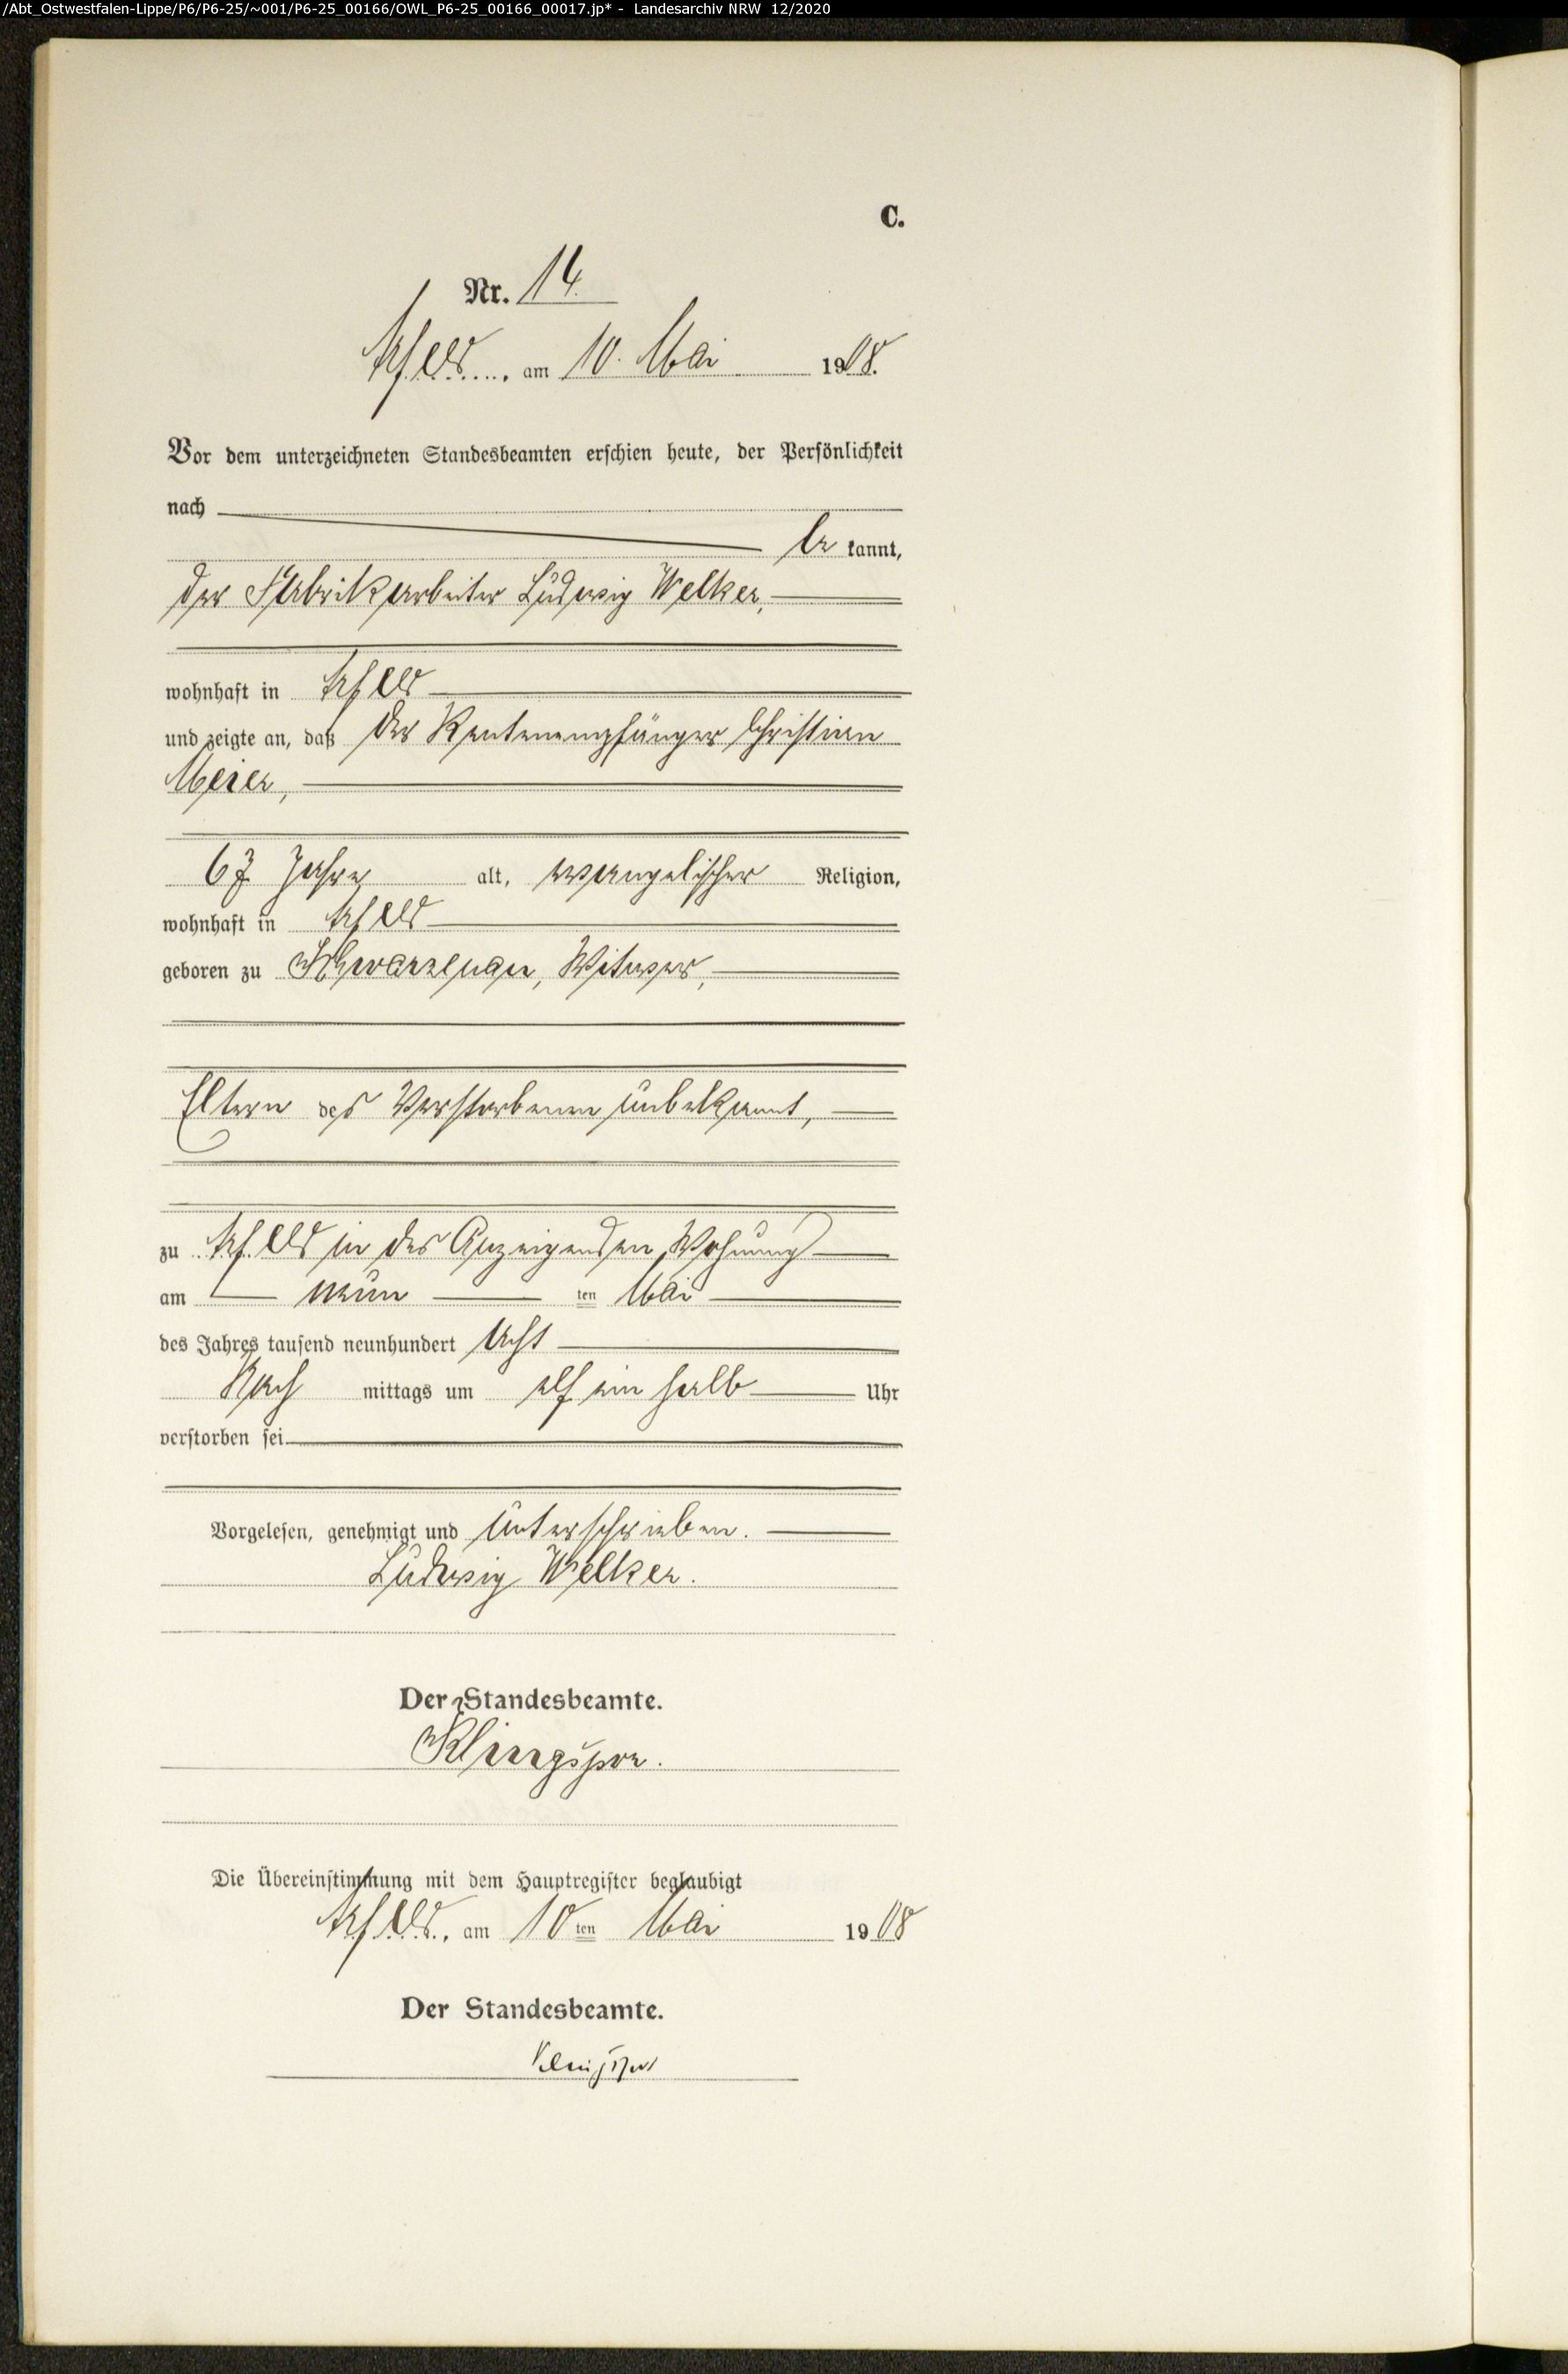 /Abt_Ostwestfalen-Lippe/P6/P6-25/~001/P6-25_00166/OWL_P6-25_00166_00017.jp* - Landesarchiv NRW 12/2020
C.
Nr. 14.
Arfeld, am 10. Mai 1908.
Vor dem unterzeichneten Standesbeamten erschien heute, der Persönlichkeit
nach
be kannt,
der Fabrikarbeiter Ludwig Welker,
wohnhaft in Arfeld
und zeigte an, daß der Rentenempfänger Christian
Meier,
67 Jahre alt, evangelischer Religion,
wohnhaft in Arfeld
geboren zu Schwarzenau, Witwer,
Eltern des Verstorbenen unbekannt,
zu Arfeld in des Anzeigenden Wohnung
am neun ten Mai
des Jahres tausend neunhundert acht
Nach mittags um elf ein halb Uhr
verstorben sei
Vorgelesen, genehmigt und unterschrieben.
Ludwig Welker.
Der Standesbeamte.
Klingspor.
Die Übereinstimmung mit dem Hauptregister beglaubigt
Arfeld, am 10 ten Mai 1908
Der Standesbeamte.
Klingspor